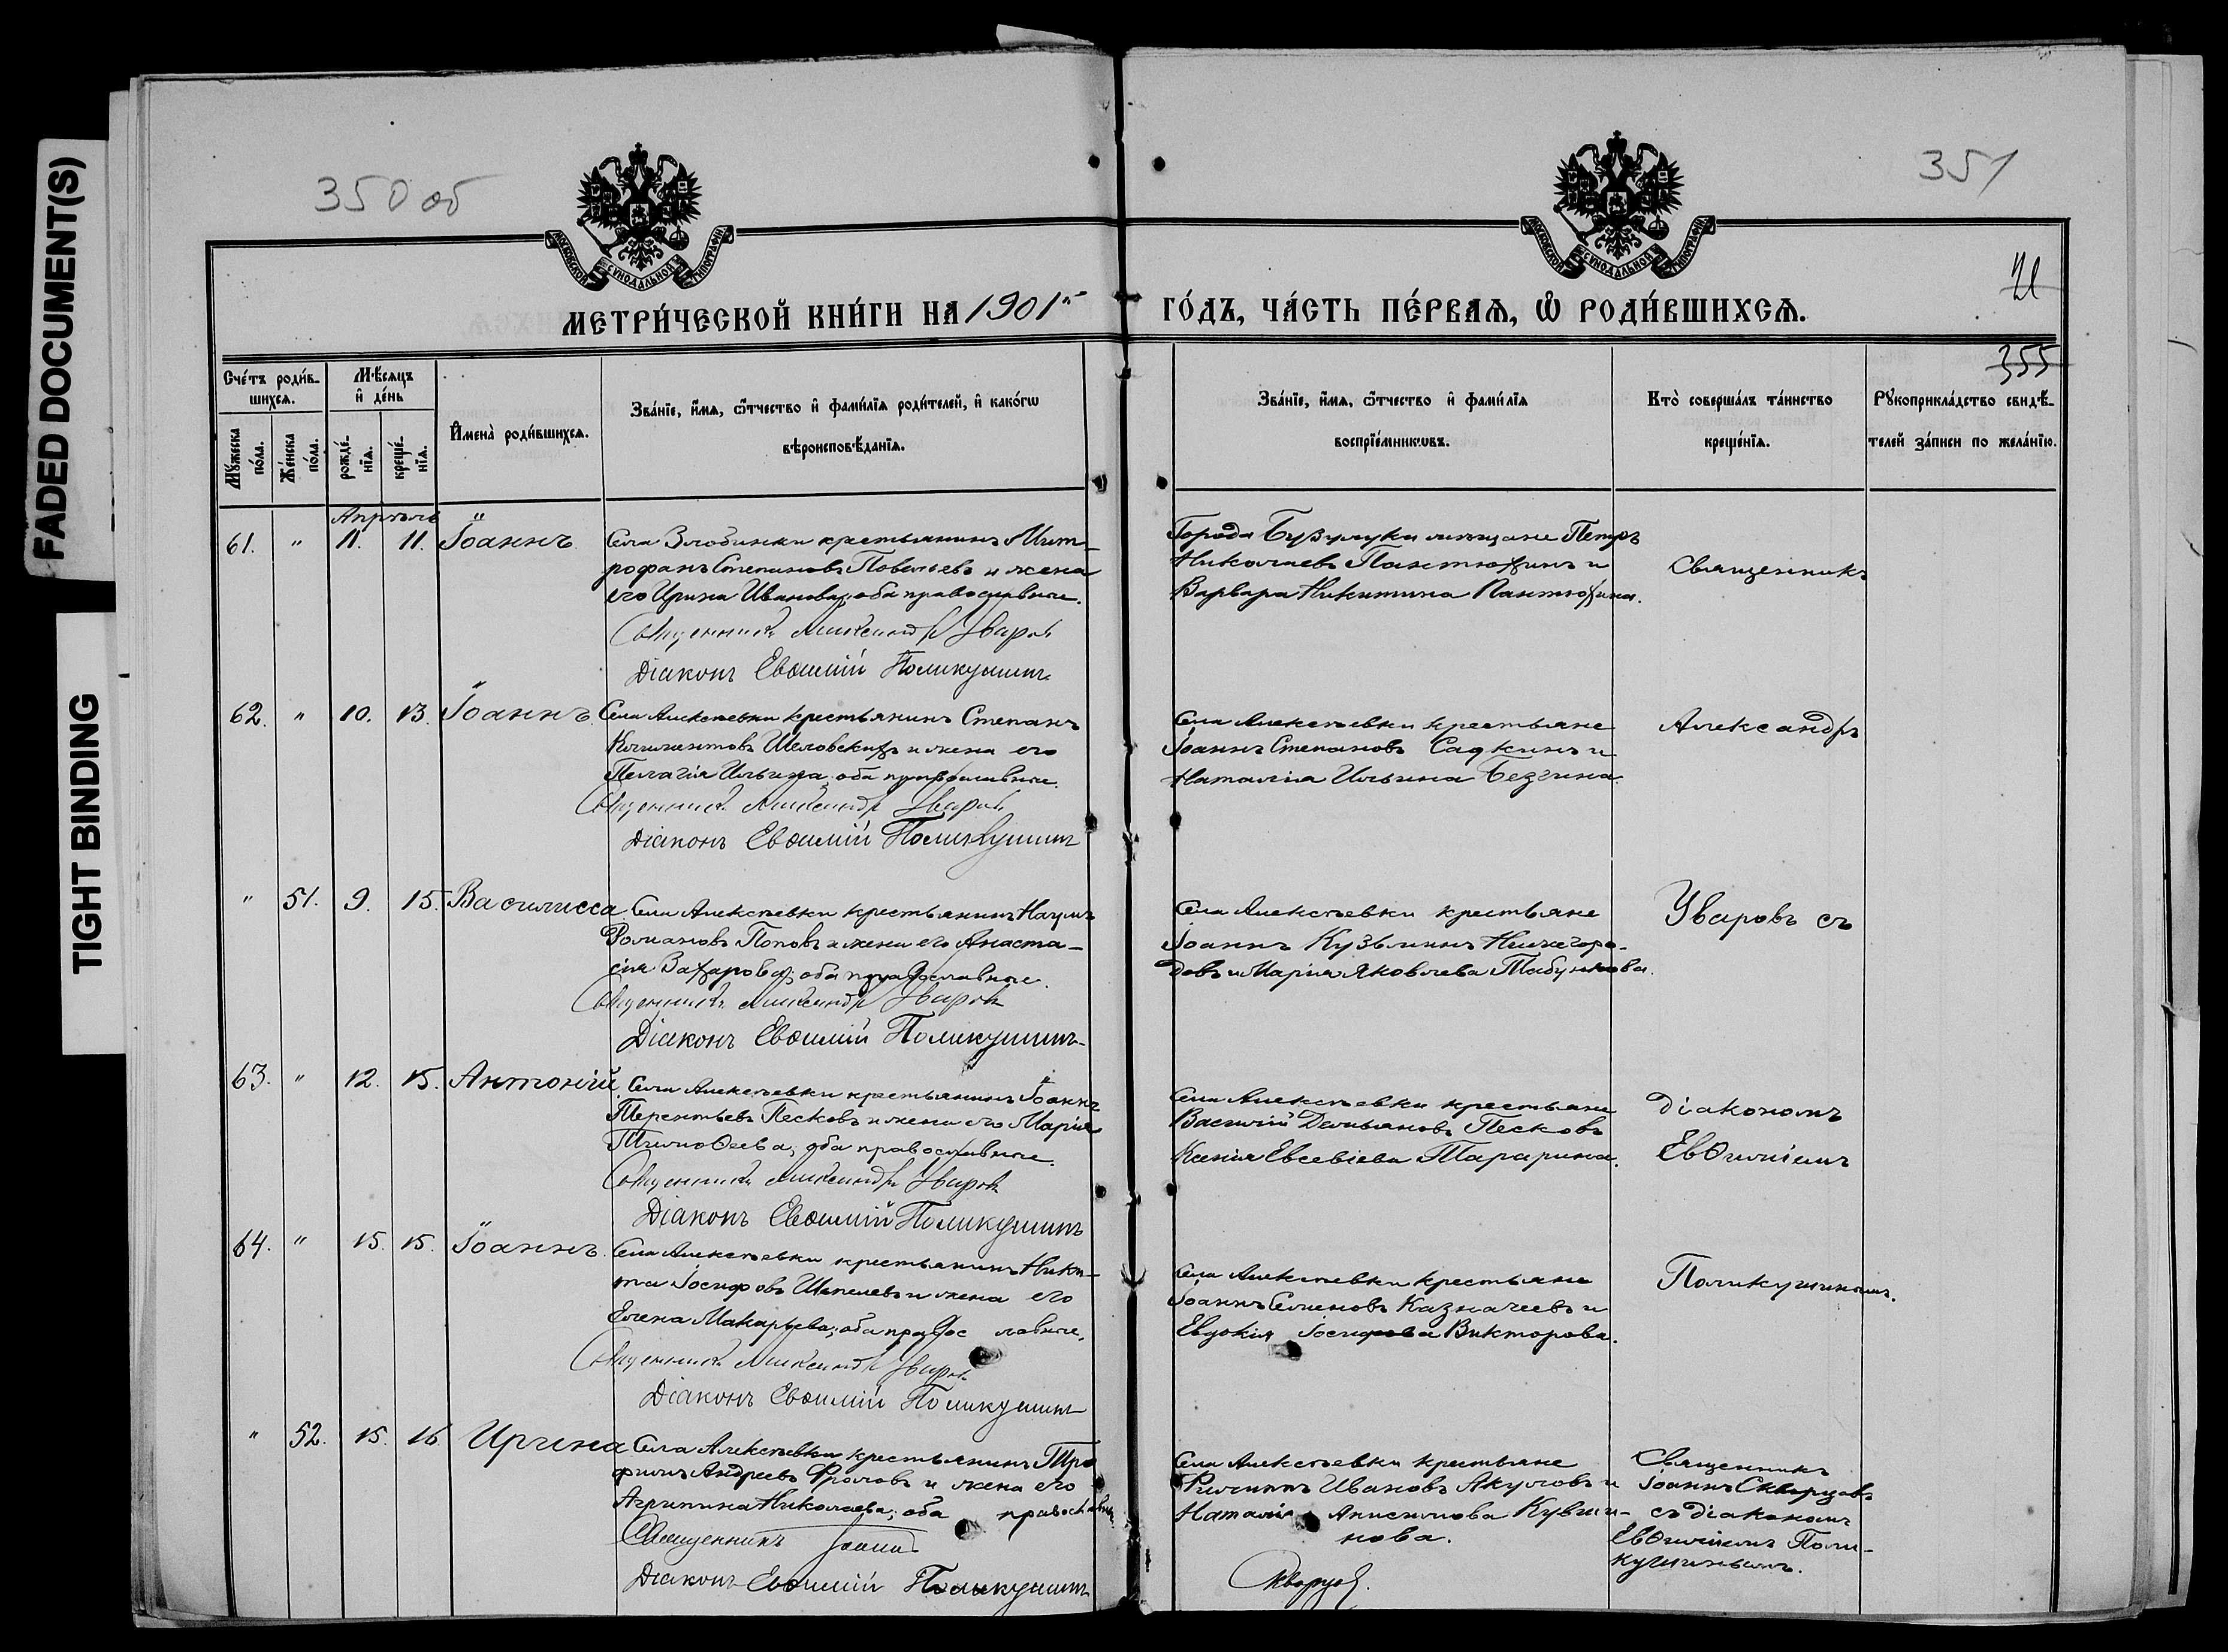 FADED DOCUMENT(S)
TIGHT BINDING
350 об
351
МОСКОВСКОЙ СѴНОДАЛЬНОЙ ТИПОГРАФІИ
МОСКОВСКОЙ СѴНОДАЛЬНОЙ ТИПОГРАФІИ
МЕТРИ́ЧЕСКОЙ КНИ́ГИ НА 1901 ГО́ДЪ, ЧА́СТЬ ПЕ́РВАѦ, Ѡ҆ РОДИ́ВШИХСѦ.
355
Сче́тъ роди́в-
шихсѧ.
Мꙋ́жеска
по́ла.
Же́нска
по́ла.
Мѣ́сѧцъ
и҆ де́нь
рожде́-
нїѧ.
креще́-
нїѧ.
И҆мена̀ роди́вшихсѧ.
Зва́нїе, и҆́мѧ, ѻ҆́тчество и҆ фами́лїѧ роди́телей, и҆ како́гѡ
вѣроисповѣ́данїѧ.
Зва́нїе, и҆́мѧ, ѻ҆́тчество и҆ фами́лїѧ
воспрїе́мникѡвъ.
Кто̀ соверша́лъ та́инство
креще́нїѧ.
Рꙋкоприкла́дство свидѣ́-
телей за́писи по жела́нїю.
Апрѣль
61. " 11. 11. Іоаннъ
Села Злобинки крестьянинъ Мит-
рофанъ Степановъ Повольевъ и жена
его Ирина Иванова; оба православные.
Священникъ Александръ Уваровъ
Діаконъ Евѳимій Поликушинъ
Города Бузулука мѣщане Петръ
Николаевъ Пантюхинъ и
Варвара Никитина Пантюхина.
Священникъ
62. " 10. 13. Іоаннъ.
Села Алексѣевки крестьянинъ Степанъ
Климентовъ Шеловскихъ и жена его
Пелагія Ильина; оба православные.
Священникъ Александръ Уваровъ
Діаконъ Евѳимій Поликушинъ
Села Алексѣевки крестьяне
Іоаннъ Степановъ Садкинъ и
Наталія Ильина Безгина.
Александръ
" 51. 9. 15. Василисса
Села Алексѣевки крестьянинъ Наумъ
Романовъ Поповъ и жена его Анаста-
сія Захарова; оба православные.
Священникъ Александръ Уваровъ
Діаконъ Евѳимій Поликушинъ
Села Алексѣевки крестьяне
Іоаннъ Кузьминъ Нижегоро-
довъ и Марія Яковлева Табункова.
Уваровъ съ
63. " 12. 15. Антоній
Села Алексѣевки крестьянинъ Іоаннъ
Терентьевъ Песковъ и жена его Марія
Тимоѳеева; оба православные.
Священникъ Александръ Уваровъ
Діаконъ Евѳимій Поликушинъ
Села Алексѣевки крестьяне
Василій Демьяновъ Песковъ
Ксенія Евсевіева Тарарина.
діакономъ
Евѳиміемъ
64. " 15. 15. Іоаннъ.
Села Алексѣевки крестьянинъ Ники-
та Іосифовъ Шепелевъ и жена его
Елена Макарьева; оба православные.
Священникъ Александръ Уваровъ
Діаконъ Евѳимій Поликушинъ
Села Алексѣевки крестьяне
Іоаннъ Семеновъ Казначеевъ и
Евдокія Іосифова Викторова.
Поликушинымъ.
" 52. 15. 16. Ирина
Села Алексѣевки крестьянинъ Тро-
фимъ Андреевъ Фроловъ и жена его
Агрипина Николаева; оба православные.
Священникъ Іоаннъ
Діаконъ Евѳимій Поликушинъ
Села Алексѣевки крестьяне
Филиппъ Ивановъ Акуловъ и
Наталія Анисимова Кувши-
нова.
Скворцовъ.
Священникъ
Іоаннъ Скворцовъ
съ діакономъ
Евѳиміемъ Поли-
кушинымъ.